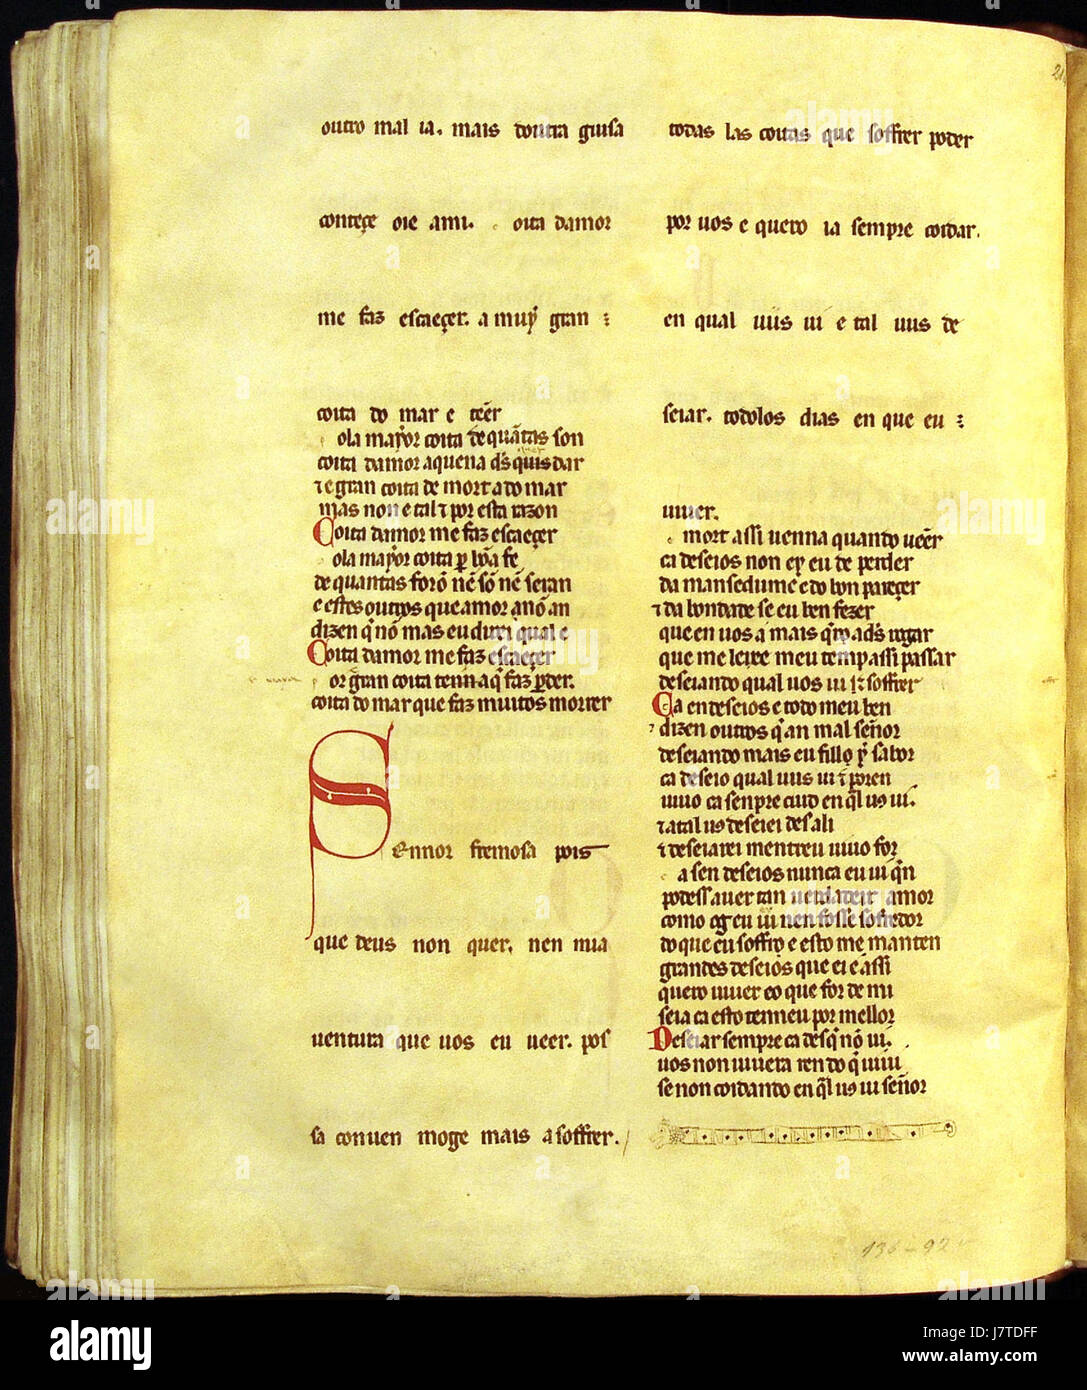 outro mal ia. mais doutra guisa
conteçe oie ami. oita damor
me faz escaeçer. a muẏ gran
coita do mar e tẽer
ola maẏor coita de quãtas son
coita damor aquena ds̃ quis dar
⁊ e gran coita de mort a do mar
mas non e tal ⁊ por esta razon
Coita damor me faz escaeçer
ola maẏor coita ꝑ bõa fe
de quantas forõ nẽ sõ nẽ seran
e estes outros que amor anõ an
dizen q̃ nõ mas eu direi qual e
Coita damor me faz escaeçer
or gran coita tenna q̃ faz ꝑder.
coita do mar que faz muitos morrer
Sennor fremosa pois
que deus non quer. nen mia
uentura que uos eu ueer. pos
sa conuen moge mais a soffrer.
todas las coitas que soffrer poder
por uos e quero ia sempre coidar.
en qual uus ui e tal uus de
seiar. todolos dias en que eu
uiuer.
mort assi uenna quando uẽer
ca deseios non eẏ eu de perder
da mansedume e do bon pareçer
⁊ da bondade se eu ben fezer
que en uos a mais q̃ro a ds̃ rogar
que me leixe meu temp assi passar
deseiando qual uos ui ⁊ soffrer
Ca en deseios e todo meu ben
dizen outros q̃ an mal señor
deseiando mais eu fillo ẏ sabor
ca deseio qual uus ui ⁊ poren
uiuo ca senpre cuid en q̃l us ui.
⁊ a tal us deseiei des ali
⁊ deseiarei mentreu uiuo for
a sen deseios nunca eu ui q̃n
podess auer tan uerdadeir amor
como og eu ui nen fosse sofredor
do que eu soffro e esto me manten
grandes deseios que ei e assi
quero uiuer e o que for de mi
seia ca esto tenneu por mellor
Deseiar sempre ca des q̃ nõ ui.
uos non uiuera ren do q̃ uiuu
se non coidando en q̃l us ui señor
136-92
alamy
Image ID: J7TDFF
www.alamy.com